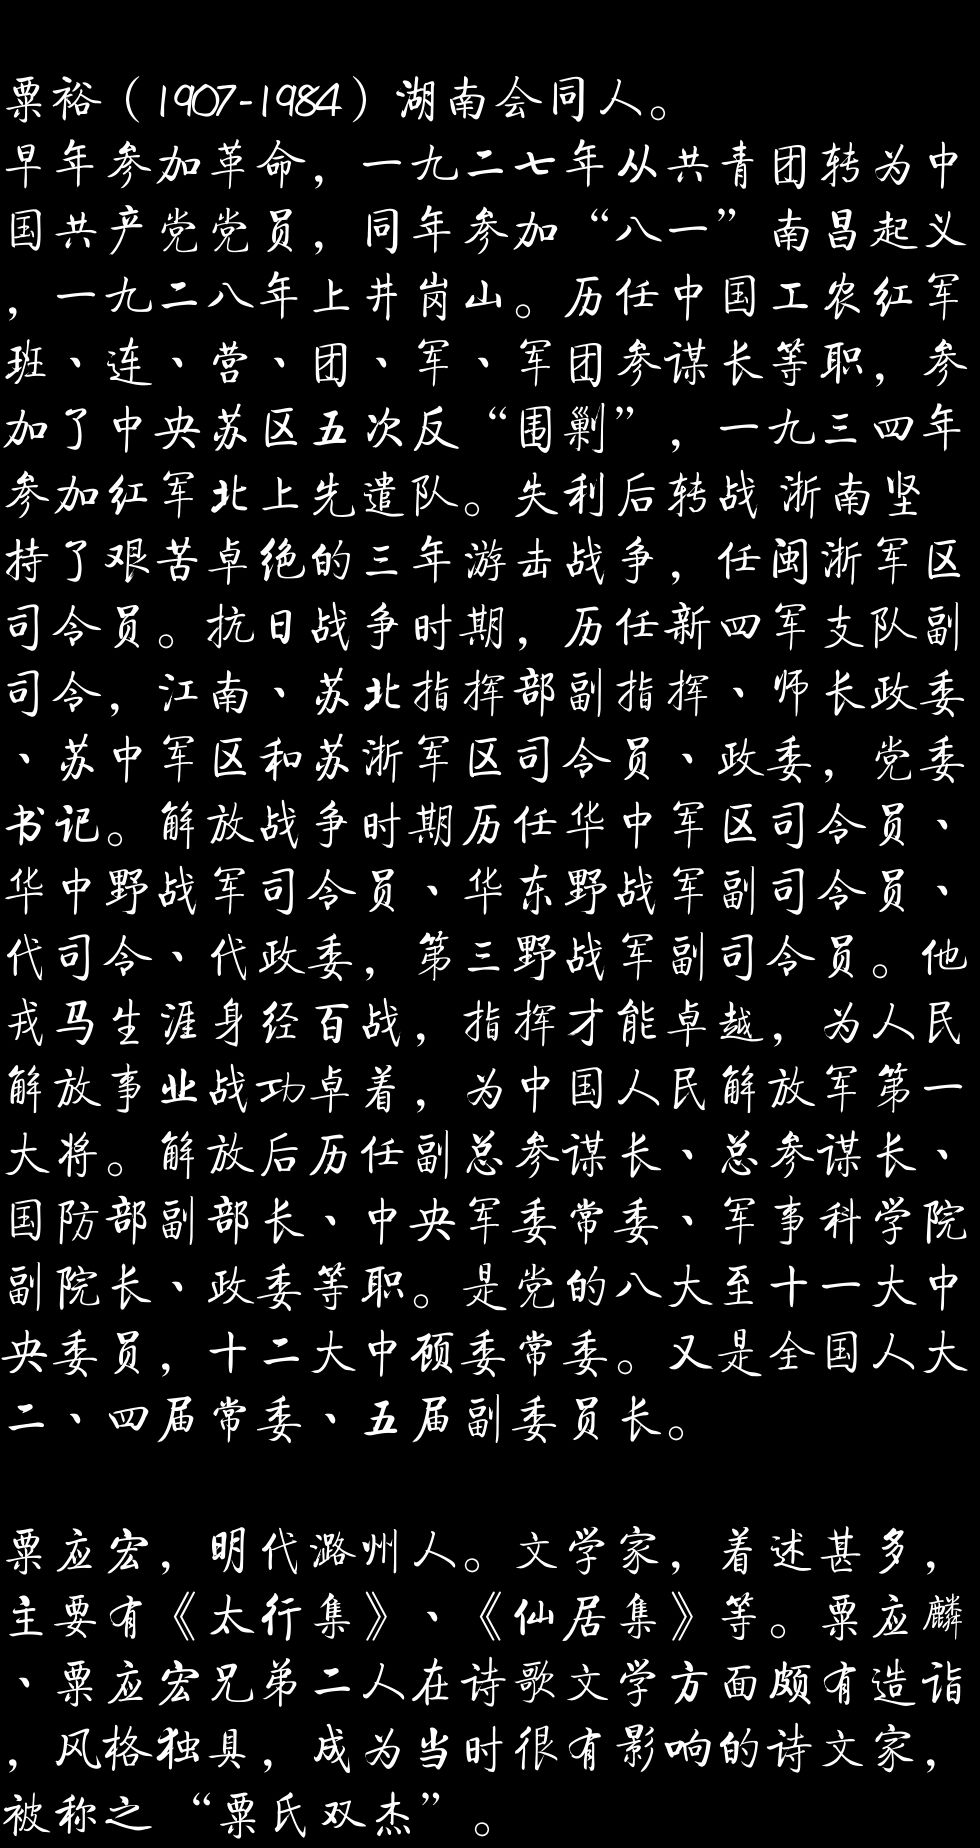 粟裕（1907-1984）湖南会同人。
早年参加革命，一九二七年从共青团转为中
国共产党党员，同年参加“八一”南昌起义
，一九二八年上井岗山。历任中国工农红军
班、连、营、团、军、军团参谋长等职，参
加了中央苏区五次反“围剿”，一九三四年
参加红军北上先遣队。失利后转战 浙南坚
持了艰苦卓绝的三年游击战争，任闽浙军区
司令员。抗日战争时期，历任新四军支队副
司令，江南、苏北指挥部副指挥、师长政委
、苏中军区和苏浙军区司令员、政委，党委
书记。解放战争时期历任华中军区司令员、
华中野战军司令员、华东野战军副司令员、
代司令、代政委，第三野战军副司令员。他
戎马生涯身经百战，指挥才能卓越，为人民
解放事业战功卓着，为中国人民解放军第一
大将。解放后历任副总参谋长、总参谋长、
国防部副部长、中央军委常委、军事科学院
副院长、政委等职。是党的八大至十一大中
央委员，十二大中顾委常委。又是全国人大
二、四届常委、五届副委员长。
粟应宏，明代潞州人。文学家，着述甚多，
主要有《太行集》、《仙居集》等。粟应麟
、粟应宏兄弟二人在诗歌文学方面颇有造诣
，风格独具，成为当时很有影响的诗文家，
被称之 “粟氏双杰”。